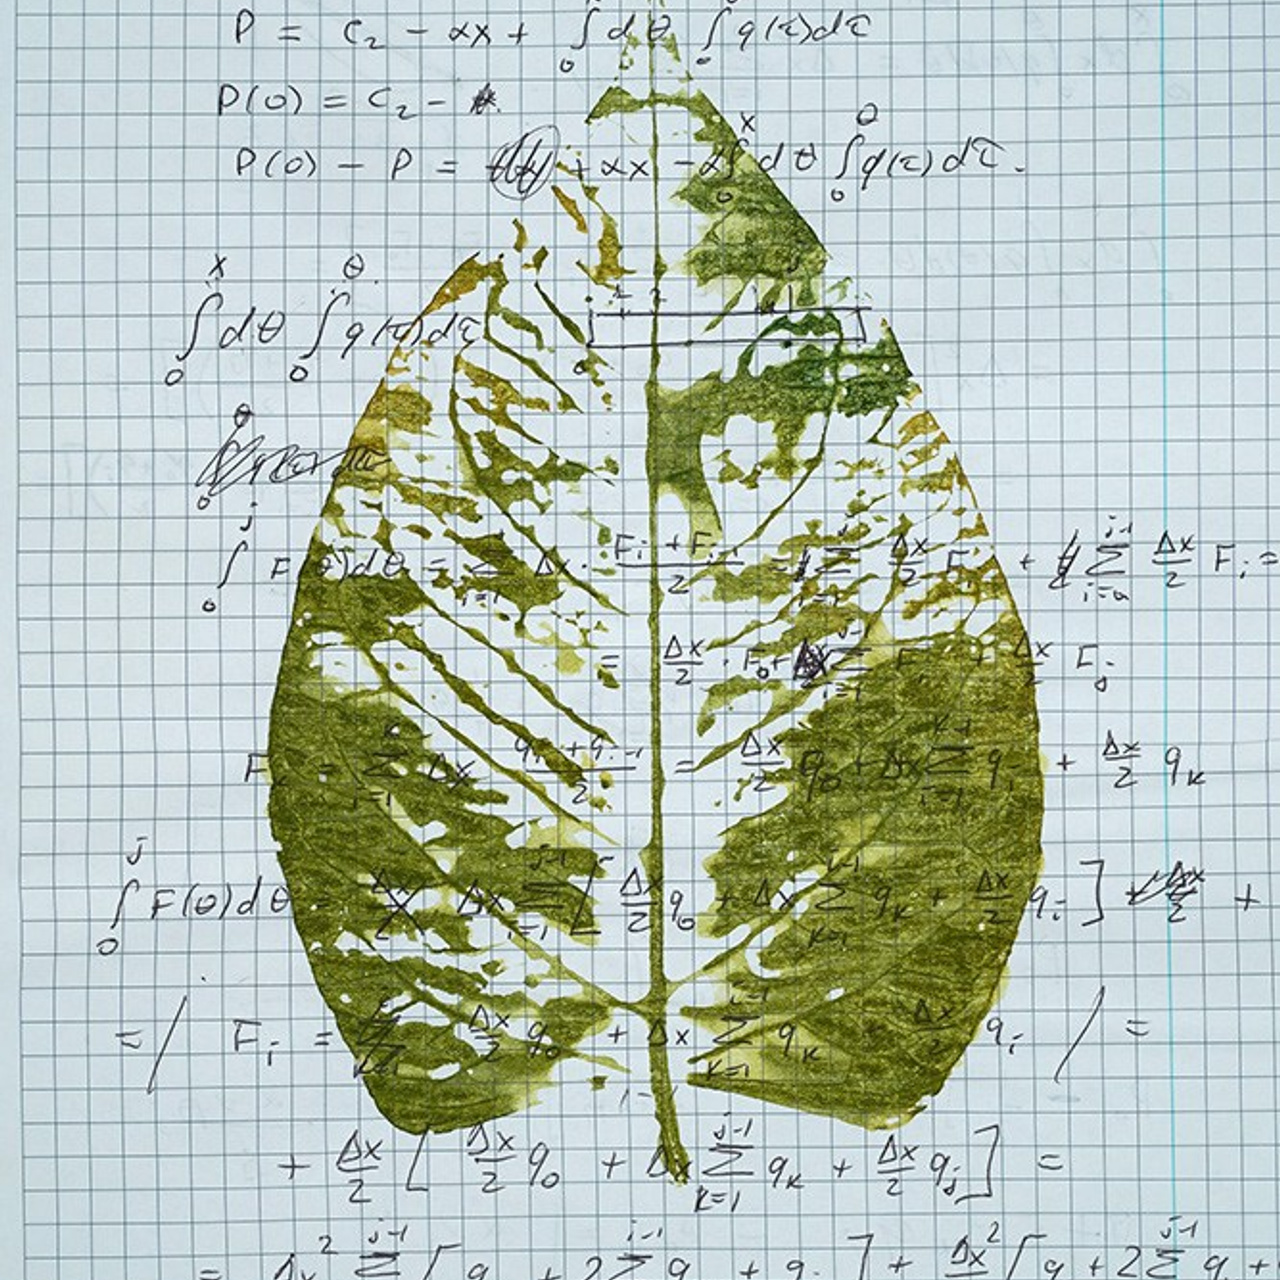 P = C₂ - αx + ∫₀ dθ ∫₀ q(τ)dτ
P(0) = C₂ -
P(0) - P = + αx - α∫₀ˣ dθ ∫₀^θ q(τ)dτ.
∫₀ˣ dθ ∫₀^θ q(τ)dτ
∫₀ʲ F(θ)dθ = Σ Δx · (Fᵢ + Fᵢ₋₁)/2 = Σ Δx/2 Fᵢ + Σᵢ₌₀ʲ⁻¹ Δx/2 Fᵢ =
= Δx/2 · F₀ + Δx Σᵢ₌₁ʲ⁻¹ Fᵢ + Δx/2 Fⱼ
Fₖ = Σᵢ₌₁ᵏ Δx (qᵢ + qᵢ₋₁)/2 = Δx/2 q₀ + Δx Σᵢ₌₁ᵏ⁻¹ qᵢ + Δx/2 qₖ
∫₀ʲ F(θ)dθ = Δx Σᵢ₌₁ʲ⁻¹ [ Δx/2 q₀ + Δx Σₖ₌₁ⁱ⁻¹ qₖ + Δx/2 qᵢ ] +
= / Fᵢ = Δx/2 q₀ + Δx Σₖ₌₁ⁱ⁻¹ qₖ + Δx/2 qᵢ / =
+ Δx/2 [ Δx/2 q₀ + Δx Σₖ₌₁ʲ⁻¹ qₖ + Δx/2 qⱼ ] =
= Δx² Σʲ⁻¹ [ q + 2 Σⁱ⁻¹ q + q ] + Δx² [ q + 2 Σʲ⁻¹ q +